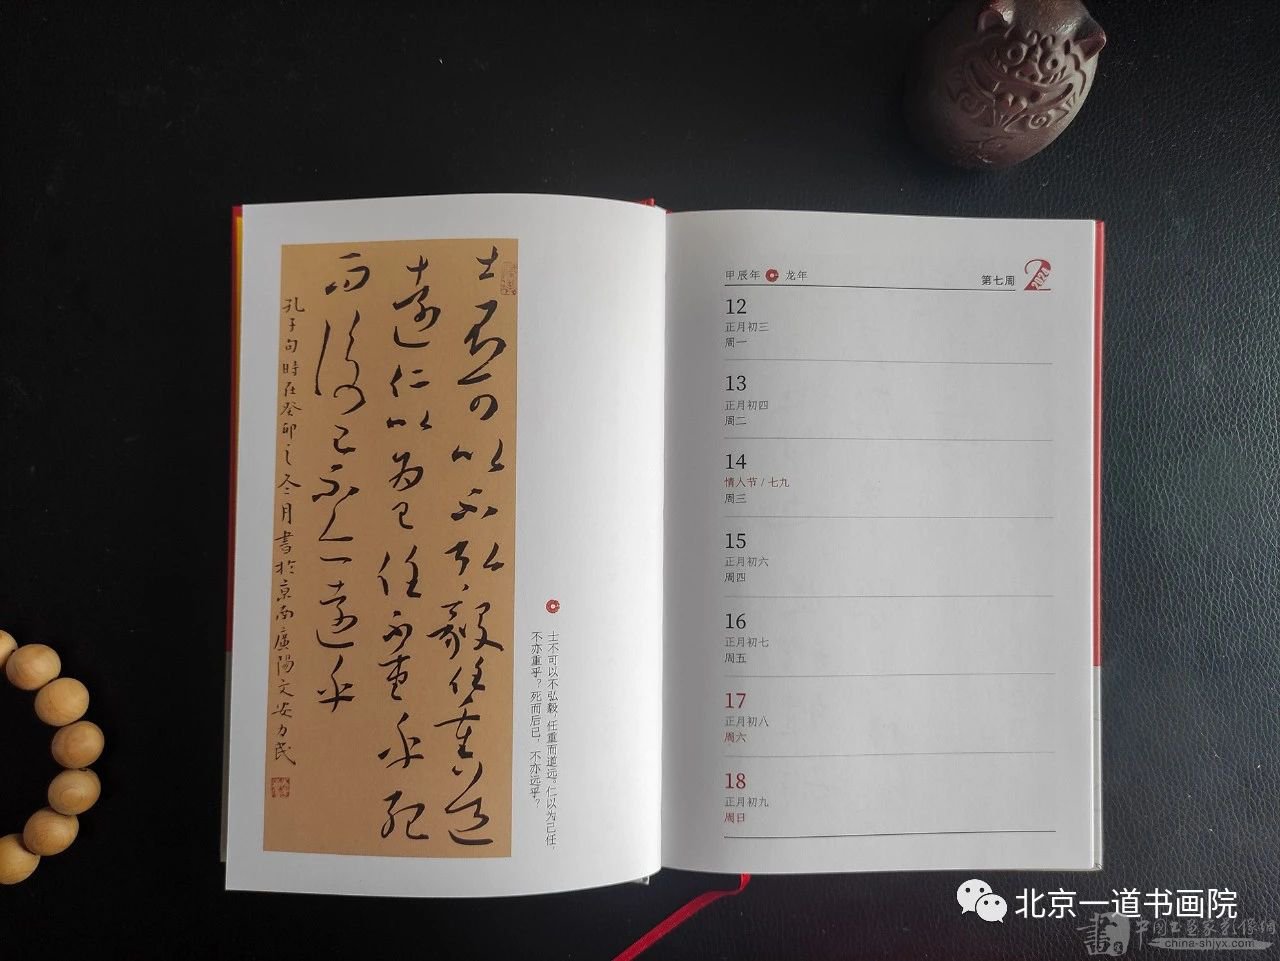 士不可以不弘毅任重而道
遠仁以为己任不亦重乎死
而後已不亦遠乎
孔子句時在癸卯之冬月書於京南廣陽文安力民
士不可以不弘毅，任重而道远。仁以为己任，
不亦重乎？死而后已，不亦远乎？
甲辰年 龙年
第七周
2
2024
12
正月初三
周一
13
正月初四
周二
14
情人节 / 七九
周三
15
正月初六
周四
16
正月初七
周五
17
正月初八
周六
18
正月初九
周日
北京一道书画院
中国书画家影像网
www.china-shjyx.com